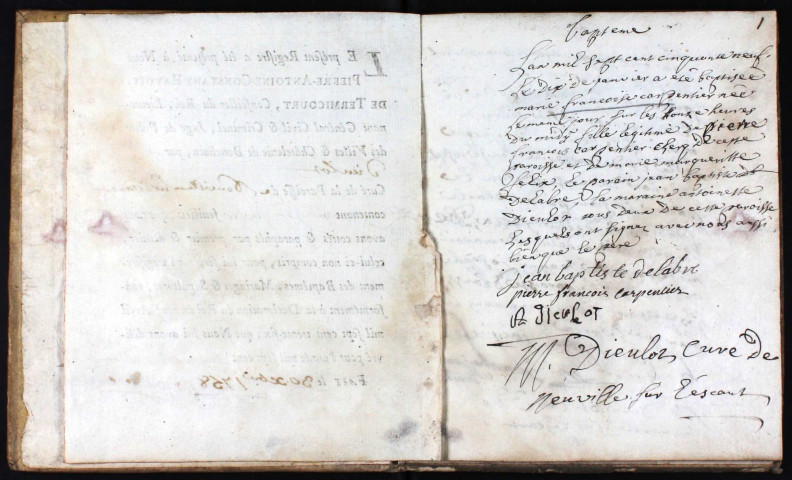 LE présent Registre a été présenté à Nous
PIERRE-ANTOINE-CONSTANT HAVOT,
DE TERMICOURT, Conseiller du Roi, Lieute-
nant Général Civil & Criminel, Juge, de
des Villes & Châtelenie de Bouchain, par
Dieulot
Curé de la Paroisse de
contenant feuillets
avons cotté & paraphé par premier &
celui-ci non compris, pour
mens des Baptêmes, Mariages & Sépultures,
formément à la Déclaration du Roi
mil sept cent trente-six, que Nous lui avons déli-
vré pour l'année mil sept cent
FAIT le 30 Xbre 1758
1
bapteme
Lan mil sept cent cinquante neuf
Le dix de janvier a été baptisée
marie francoise carpentier née
Le meme jour sur les honze heures
du matin fille légitime de pierre
francois carpentier clerq de cette
paroisse et de marie margueritte
felix, Le parain jean baptiste
delabre La maraine antoinette
Dieulot tous deux de cette paroisse
Lesquels ont signez avec nous aussi
bien que le pere
jean baptiste delabre
pierre francois carpentier
A Dieulot
M. Dieulot Curé de
neuville sur L'éscaut